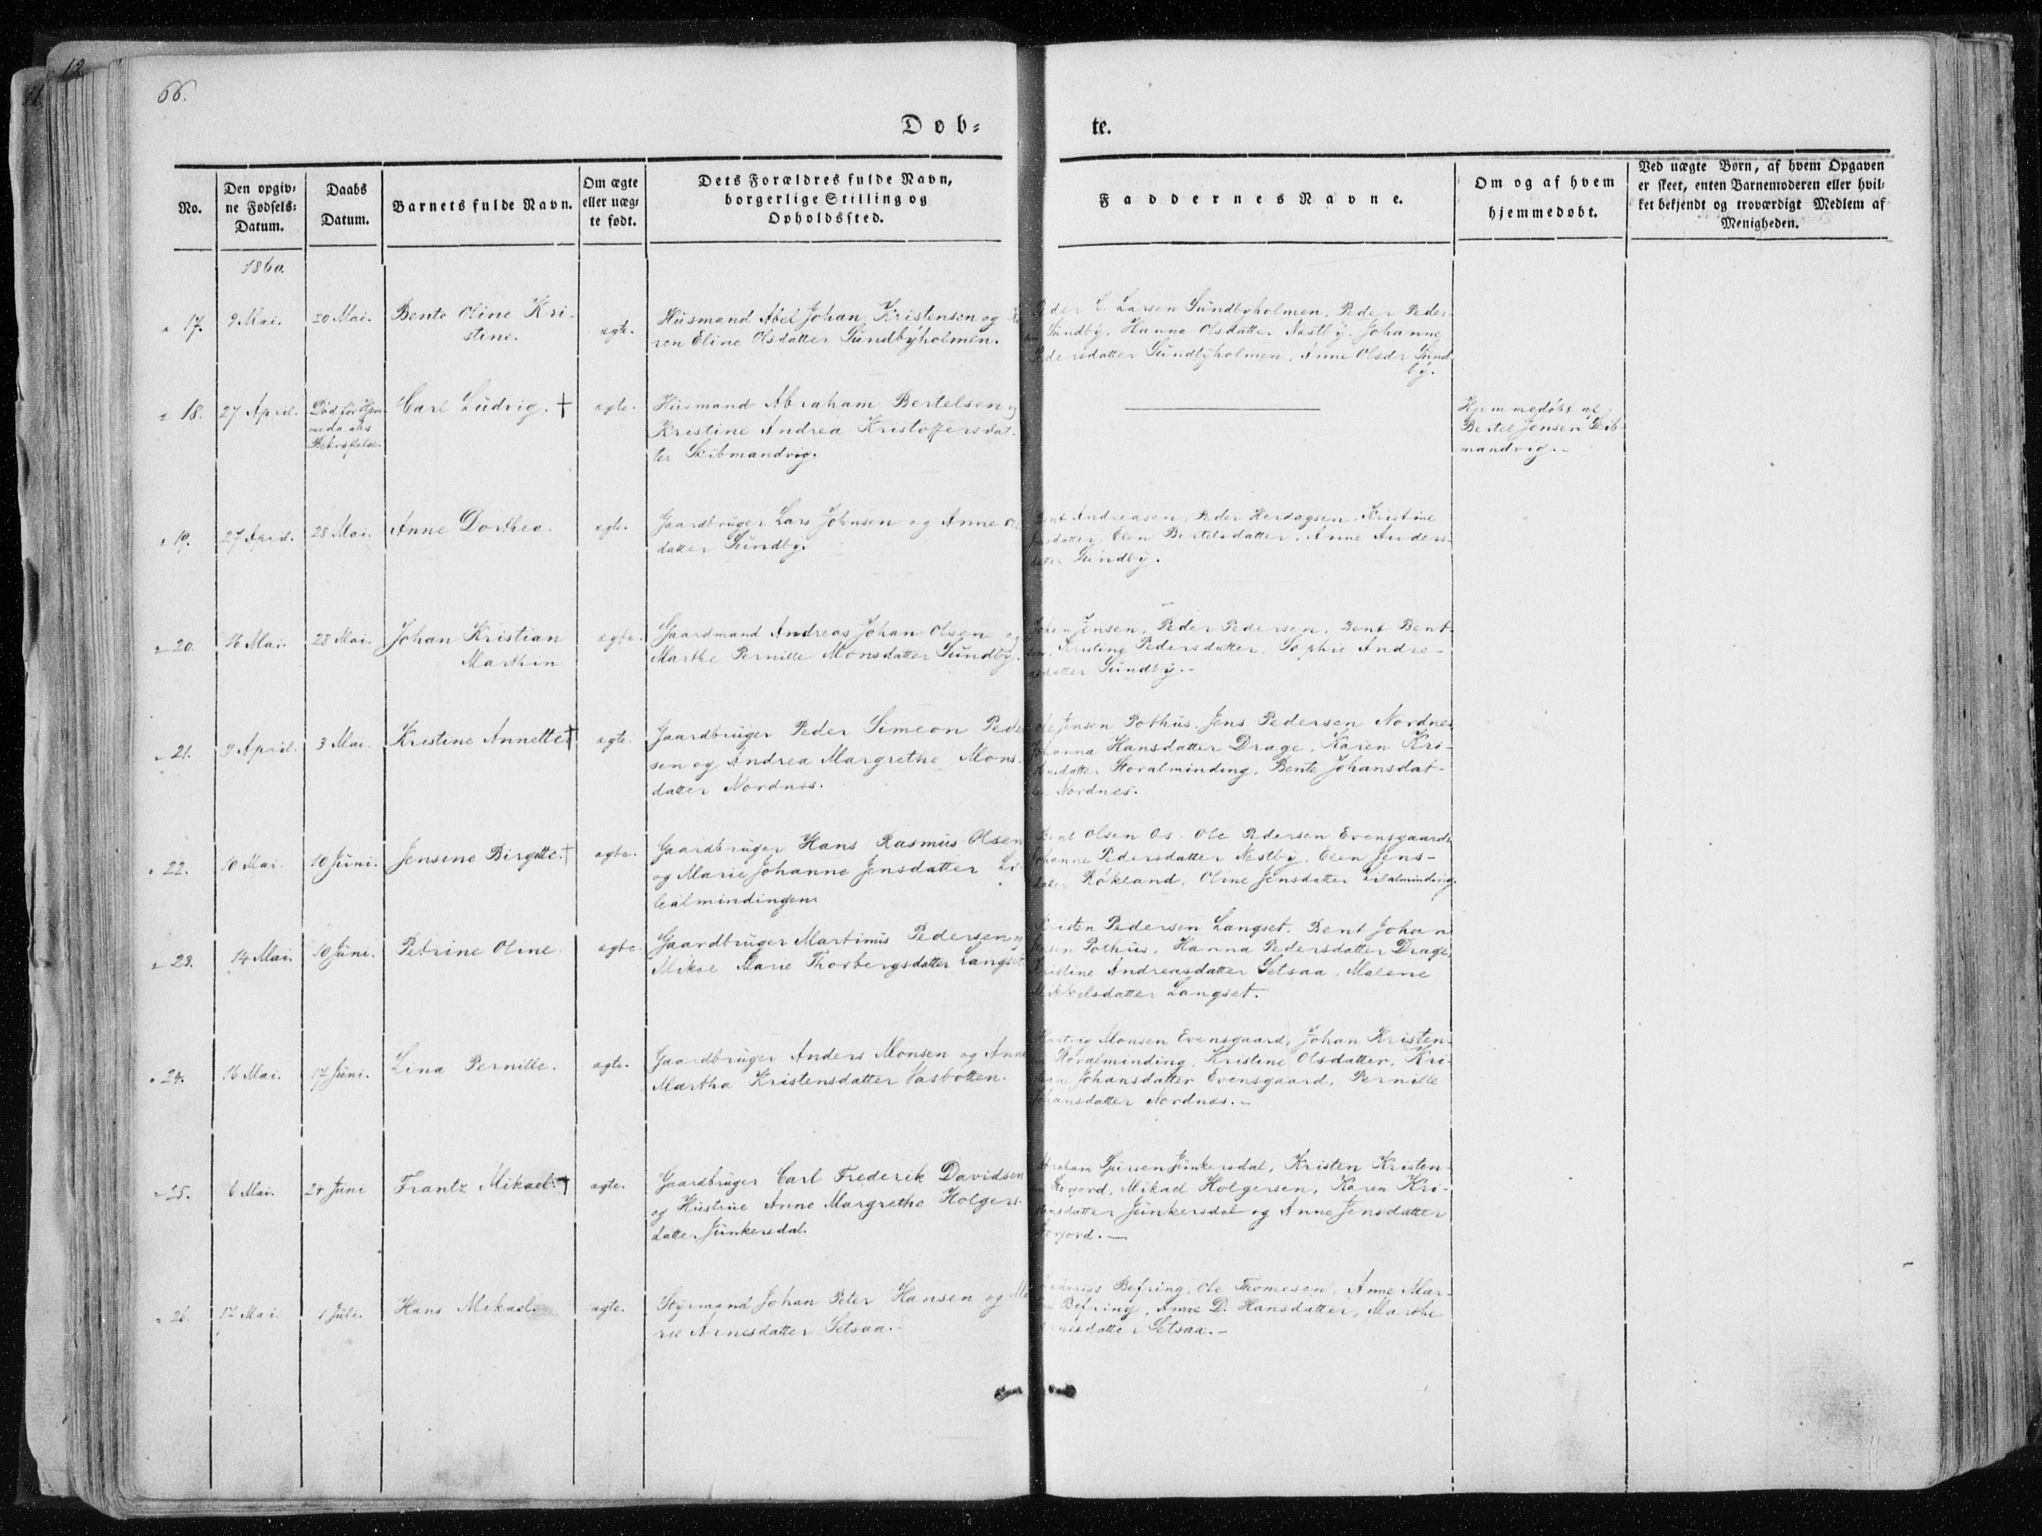 66.
Døb-
te.
No.
Den opgiv-
ne Fødsels-
Datum.
Daabs
Datum.
Barnets fulde Navn.
Om ægte
eller uæg-
te født.
Dets Forældres fulde Navn,
borgerlige Stilling og
Opholdssted.
Faddernes Navne.
Om og af hvem
hjemmedøbt.
Ved uægte Børn, af hvem Opgaven
er skeet, enten Barnemoderen eller hvil-
ket bekjendt og troværdigt Medlem af
Menigheden.
1860.
17.
9 Mai.
20 Mai.
Bente Oline Kri-
stine.
ægte.
Husmand Abel Johan Kristensen og Ka
ren Eline Olsdatter Sundbyholmen.
Peder C. Larsen Sundbyholmen, Peder Peder
Sundby, Hanna Olsdatter Nestby, Johanne
Pedersdatter Sundbyholmen, Anne Olsdr Sund
by.
18.
27 April.
Død før Hjem
medaabs
Bekræftelse.
Carl Ludvig. †
ægte.
Husmand Abraham Bertelsen og
Kristine Andrea Kristoffersdat-
ter Skibmandvig.
Hjemmedøbt af
Bertel Jensen Skib
mandvig.-
19.
27 April.
28 Mai.
Anne Dorthea.
ægte.
Gaardbruger Lars Johnsen og Anne Ols
datter Sundby.
Bent Andreasen, Peder Herdagsen, Kristine
datter, Elen Bertelsdatter, Anne Anders-
datter Sundby.
20.
16 Mai.
28 Mai.
Johan Kristian
Marthin
ægte.
Gaardmand Andreas Johan Olsen og
Marthe Pernille Monsdatter Sundby.
Johan Jensen, Peder Pedersen, Bent Bent-
sen, Kristine Pedersdatter, Sophie Andre-
asdatter Sundby.-
21.
9 April.
3 Mai.
Kristine Annette †
ægte.
Gaardbruger Peder Simeon Peder
sen og Andrea Margrethe Mons-
datter Nordnes.
Ole Jensen Pothus, Jens Pedersen Nordnes
Johanna Hansdatter Drage, Karen Kri-
stensdatter Storalminding, Bente Johansdat-
ter Nordnes.
22.
10 Mai.
10 Juni.
Jensine Birgitte. †
ægte.
Gaardbruger Hans Rasmus Olsen
og Marie Johanne Jensdatter Li-
lealmindingen.
Bent Olsen Os. Ole Pedersen Evensgaard,
Johanne Pedersdatter Nestby, Elen Jens-
datter Røkland, Oline Jensdatter Lilalminding.
23.
14 Mai.
10 Juni.
Petrine Oline.
ægte.
Gaardbruger Martinus Pedersen og
Mikae Marie Thorbergsdatter Langset
Kristen Pedersen Langset, Bent Johan
nesen Pothus, Hanna Pedersdatter Drage,
Kristine Andreasdatter Setsaa, Malene
Mikkelsdatter Langset.
24.
16 Mai.
17 Juni.
Lina Pernille.
ægte.
Gaardbruger Anders Monsen og Anne
Martha Kristensdatter Vasbotten.
Hartvig Monsen Evensgaard, Johan Kristen-
sen Storalminding, Kristine Olsdatter, Kri-
stiane Johansdatter Evensgaard, Pernille
Johansdatter Nordnes.-
25.
6 Mai.
24 Juni
Frantz Mikael. †
ægte.
Gaardbruger Carl Frederik Davidsen
og Hustrue Anne Margrethe Holgers-
datter Junkersdal.
Abraham Sjursen Junkersdal, Kristen Kristen-
sen Storjord, Mikael Holgersen, Karen Kri-
stensdatter Junkersdal og Anne Jensdatter
Storjord.-
26.
17 Mai.
1 Juli.
Hans Mikael.
ægte.
Styrmand Johan Peter Hansen og Ma
rie Arnesdatter Setsaa.-
Befring, Ole Thomesen, Anne Mar-
Befring, Anne D. Hansdatter, Marthe
Arnesdatter Setsaa.-